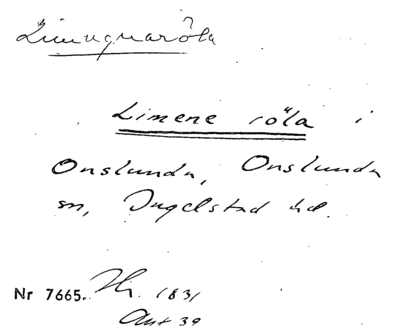 Limugnaröla
Limene röla i
Onslunda, Onslunda
sn, Ingelstad hd.
Nr 7665. 1831
Aut 39